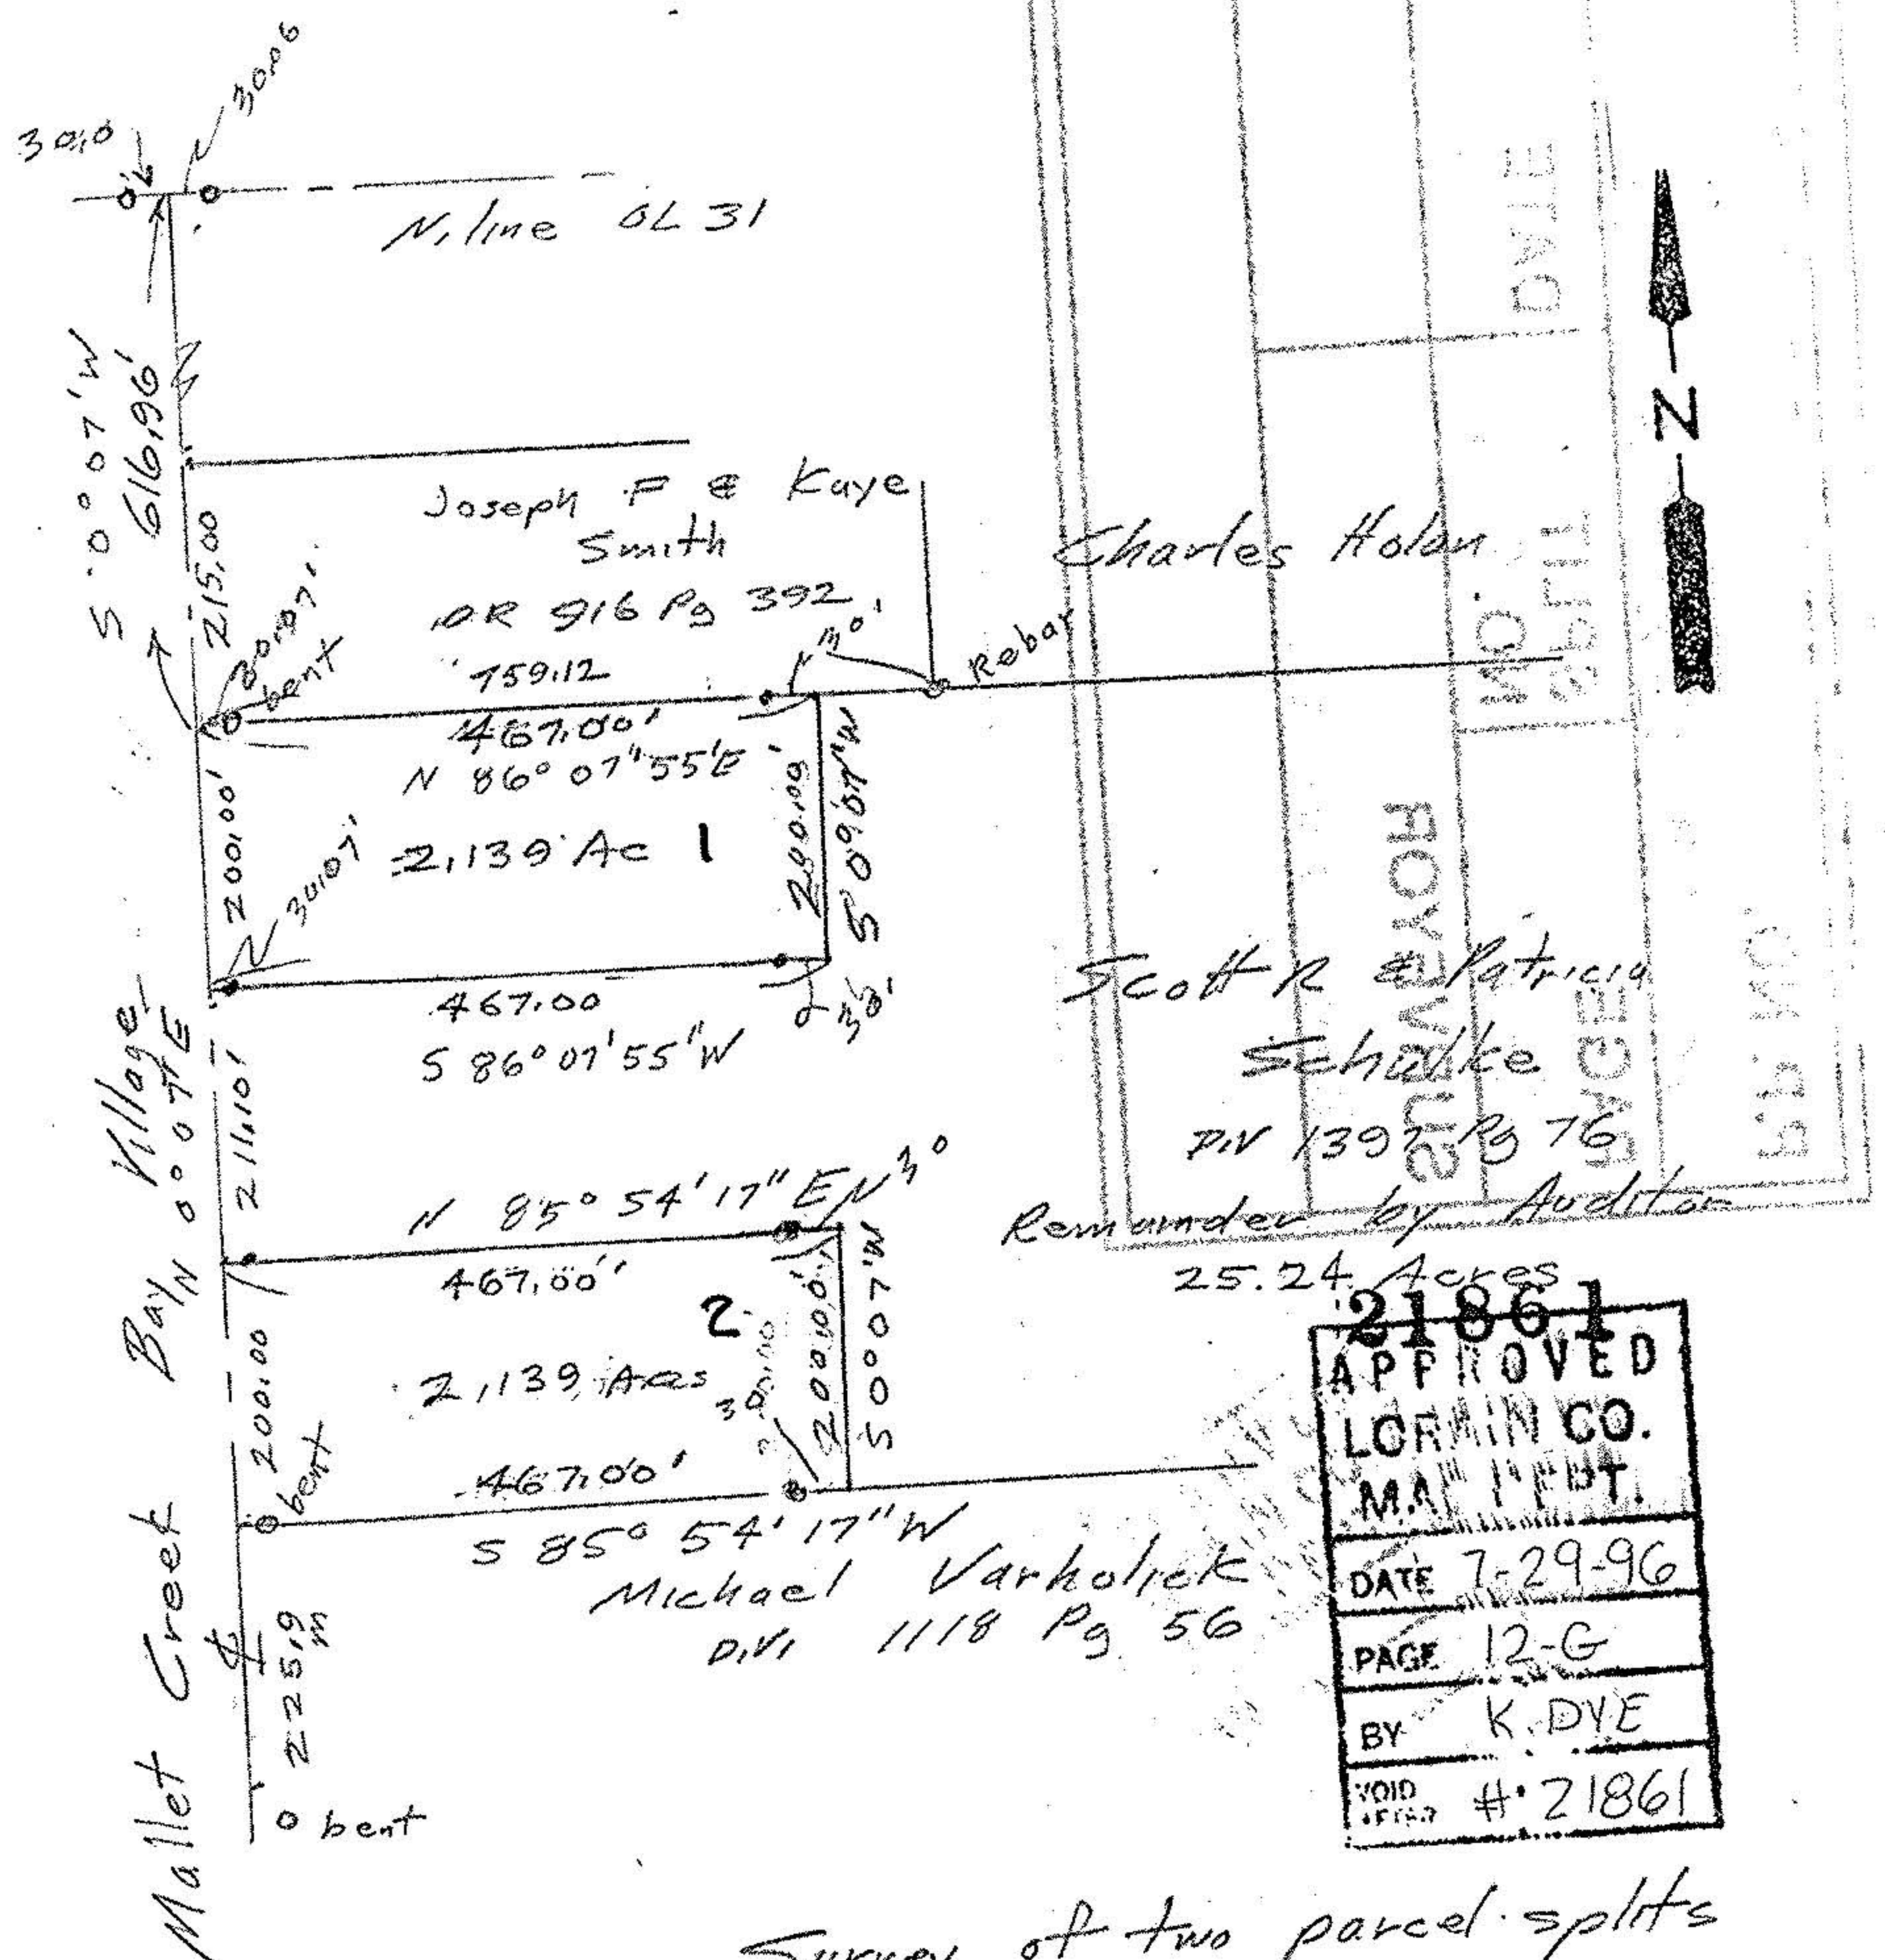 30.06
30.0
N. line OL 31
S 0° 07' W
616.96'
Joseph F & Kaye
Smith
OR 916 Pg 392
215.00
30.07'
bent
759.12
30'
Rebar
Charles Holan
467.00'
N 86° 07" 55'E
200.00'
2.139 Ac 1
200.00'
S 0° 07' W
30.07'
467.00
30'
S 86° 07' 55" W
Scott R & Patricia
Schulke
D.V 1397 Pg 76
Remainder by Auditor
25.24 Acres
Mallet Creek Bay Village
N 0° 07' E
211.10'
N 85° 54' 17" E
30
467.00'
2
2.139 Acs
200.00
30.00
200.00'
S 0° 07' W
bent
467.00'
S 85° 54' 17" W
Michael Varholick
D.V. 1118 Pg 56
225.9
m
bent
N
DATE
SPLIT
NO.
SURVEYOR
PAGE
21861
APPROVED
LORAIN CO.
MAP DEPT.
DATE 7-29-96
PAGE 12-G
BY K. DYE
VOID AFTER # 21861
Survey of two parcel splits